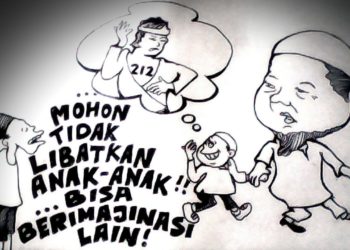 212
... MOHON
TIDAK
LIBATKAN
ANAK-ANAK!!
... BISA
BERIMAJINASI
LAIN!